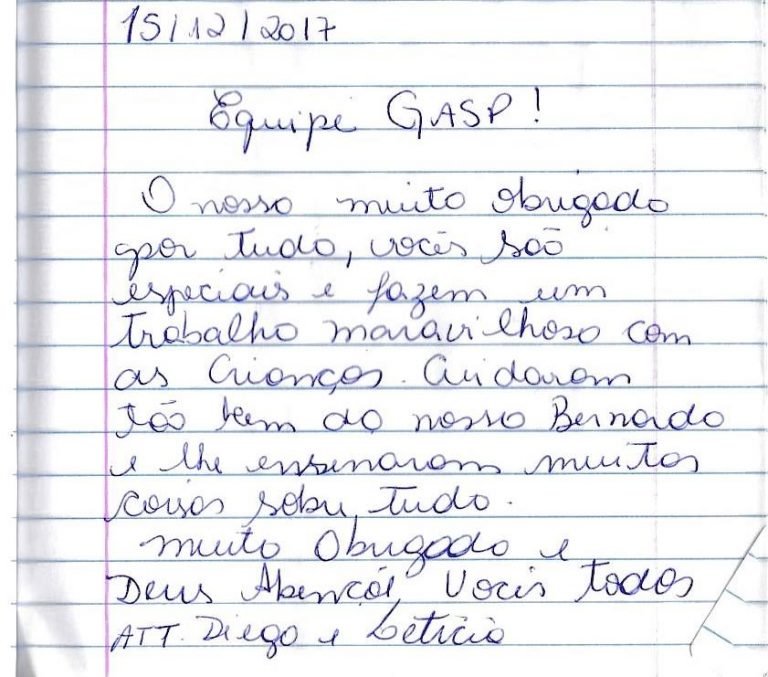 15/12/2017
Equipe GASP!
O nosso muito obrigado
por tudo, vocês são
especiais e fazem um
trabalho maravilhoso com
as crianças. Cuidaram
tão bem do nosso Bernardo
e lhe ensinaram muitas
coisas sobre tudo.
Muito Obrigado e
Deus Abençõe Vocês todos
ATT. Diego e Letícia